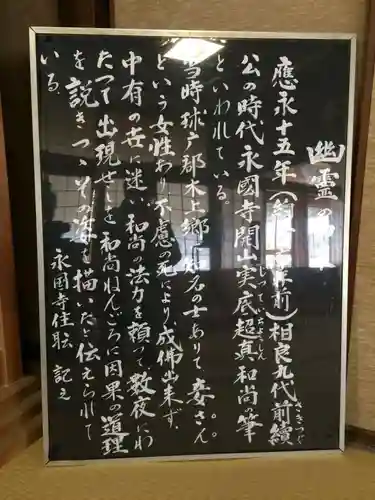 幽霊の
應永十五年(約 年前)相良九代前續
さきつぐ
公の時代永國寺開山実底超真和尚の筆
じってい
といわれている。
当時球ア郡木上郷に 名の士ありて妾さん
という女性あり不慮の死により成佛出来ず、
中有の世に迷い和尚の法力を頼って数夜にわ
たって出現せしを和尚ねんごろに因果の道理
を説きつゝその姿を描いたと伝えられて
いる
永国寺住職 記之